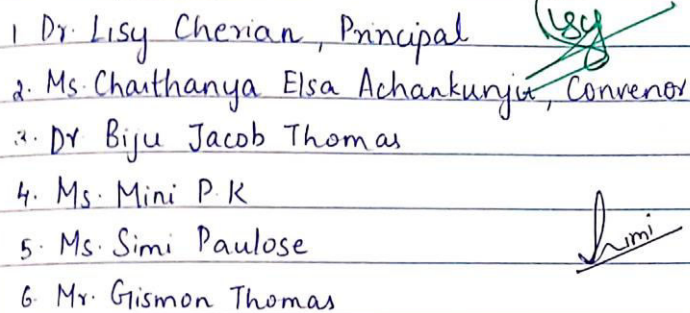 1 Dr. Lisy Cherian, Principal Lscy
2. Ms. Chaithanya Elsa Achankunju, Convenor
3. Dr Biju Jacob Thomas
4. Ms. Mini P.K
5. Ms. Simi Paulose Simi
6. Mr. Gismon Thomas